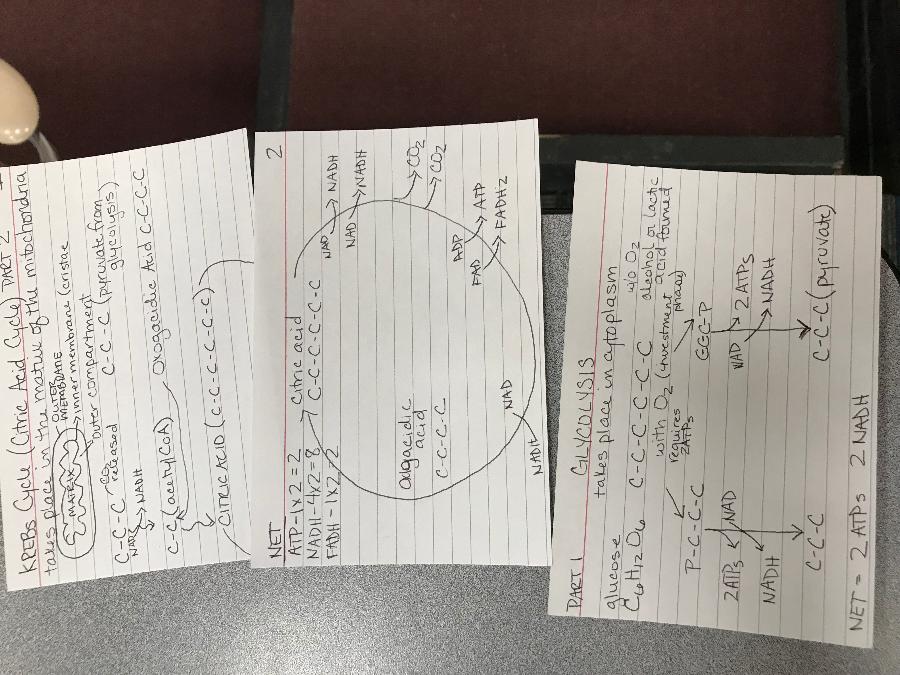 KREBS Cycle (Citric Acid Cycle) PART 2
takes place in the matrix of the mitochondria
OUTER
MEMBRANE
MATRIX
inner membrane (cristae
outer compartment
C-C-C
CO2
released
C-C-C (pyruvate from
glycolysis)
NAD
NADH
C-C (acetyl COA)
Oxogacidic Acid C-C-C-C
CITRIC ACID (C-C-C-C-C-C)
2
NET
ATP-1x2=2
NADH-4x2=8
FADH-1x2=2
Citric acid
C-C-C-C-C-C
NAD
NADH
NAD
NADH
CO2
CO2
ADP
ATP
FAD
FADH2
NAD
NADH
Oxlgacidic
acid
C-C-C-C
PART 1
GLYCOLYSIS
takes place in cytoplasm
glucose
C6H12O6
C-C-C-C-C-C
w/o O2
alcohol or lactic
acid formed
with O2 (investment
phase)
requires
2ATPs
P-C-C-C
CCC-P
2ATPs
NAD
NADH
NAD
2ATPs
NADH
C-C-C
C-C-C (pyruvate)
NET = 2 ATPs 2 NADH